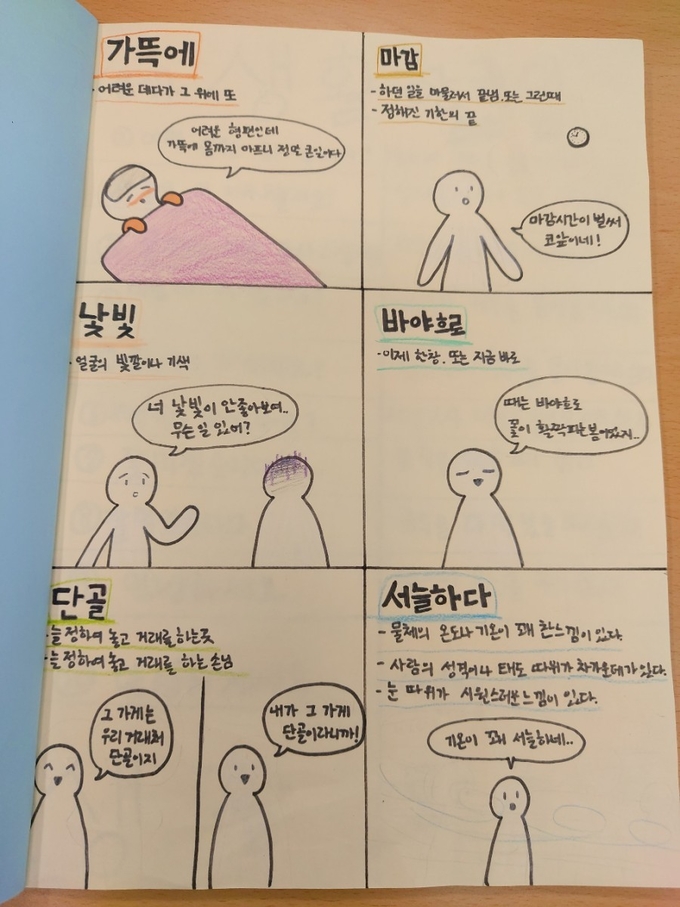 가뜩에
· 어려운 데다가 그 위에 또
어려운 형편인데
가뜩에 몸까지 아프니 정말 큰일이다
마감
- 하던 일을 마물러서 끝냄. 또는 그런때
- 정해진 기한의 끝
마감시간이 벌써
코앞이네!
낯빛
· 얼굴의 빛깔이나 기색
너 낯빛이 안좋아보여..
무슨 일 있어?
바야흐로
- 이제 한창. 또는 지금 바로
때는 바야흐로
꽃이 활짝피는 봄이었지..
단골
· 늘 정하여 놓고 거래를 하는곳
· 늘 정하여 놓고 거래를 하는 손님
그 가게는
우리 거래처
단골이지
내가 그 가게
단골이라니까!
서늘하다
- 물체의 온도나 기온이 꽤 찬느낌이 있다.
- 사람의 성격이나 태도 따위가 차가운데가 있다.
- 눈 따위가 시원스러운느낌이 있다.
기온이 꽤 서늘하네..